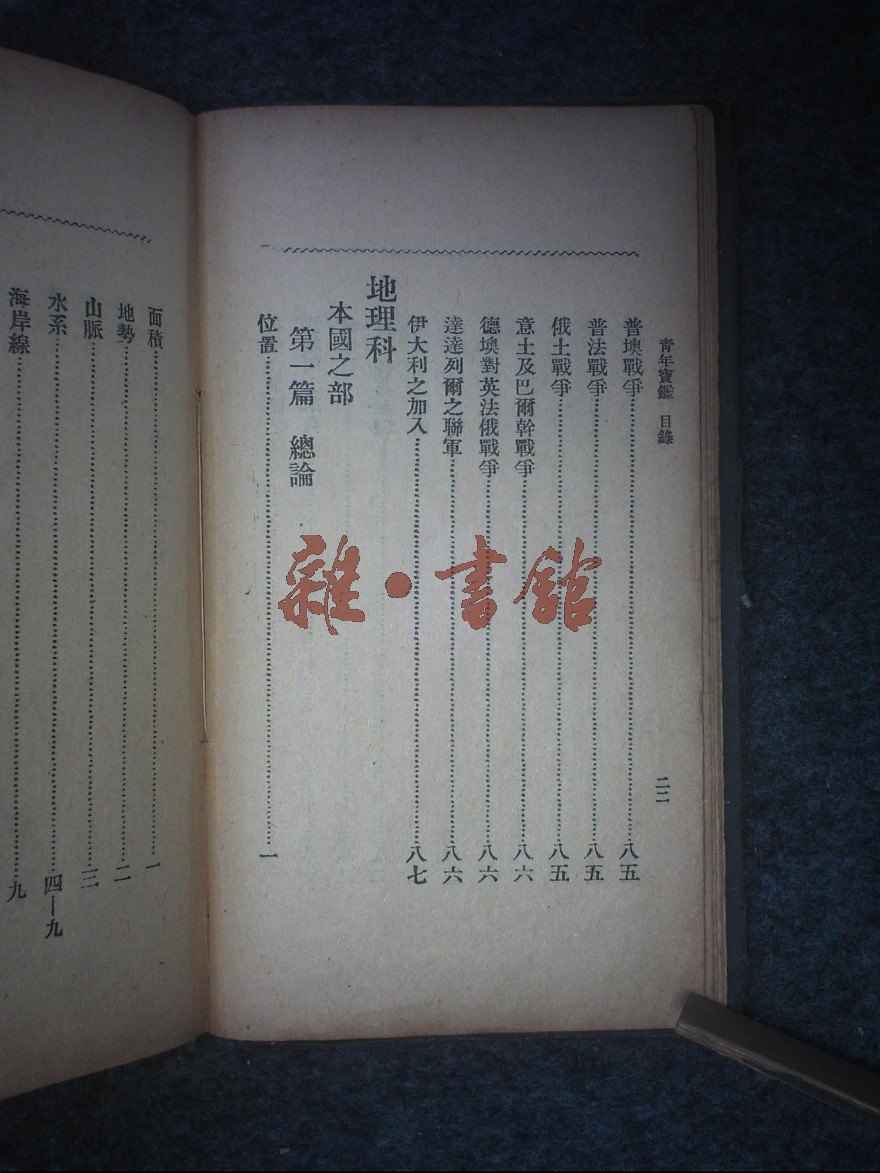 青年寶鑑 目錄
二二
普墺戰爭 八五
普法戰爭 八五
俄土戰爭 八五
意土及巴爾幹戰爭 八六
德墺對英法俄戰爭 八六
達達列爾之聯軍 八六
伊大利之加入 八七
地理科
本國之部
第一篇 總論
位置 一
面積 一
地勢 二
山脈 三
水系 四—九
海岸線 九
雜·書館